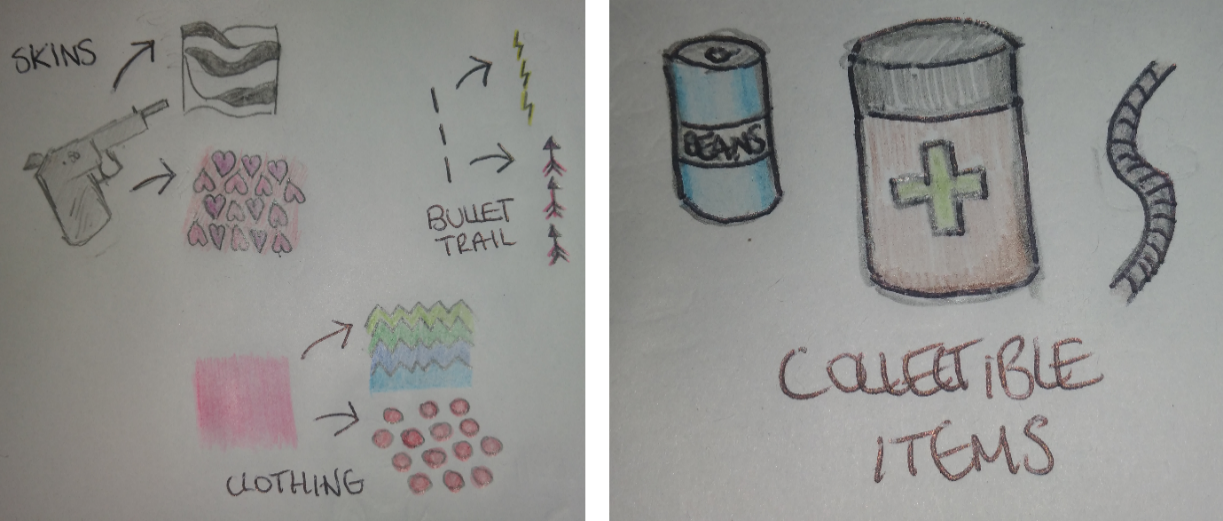 SKINS
BULLET
TRAIL
CLOTHING
BEANS
COLLECTIBLE
ITEMS